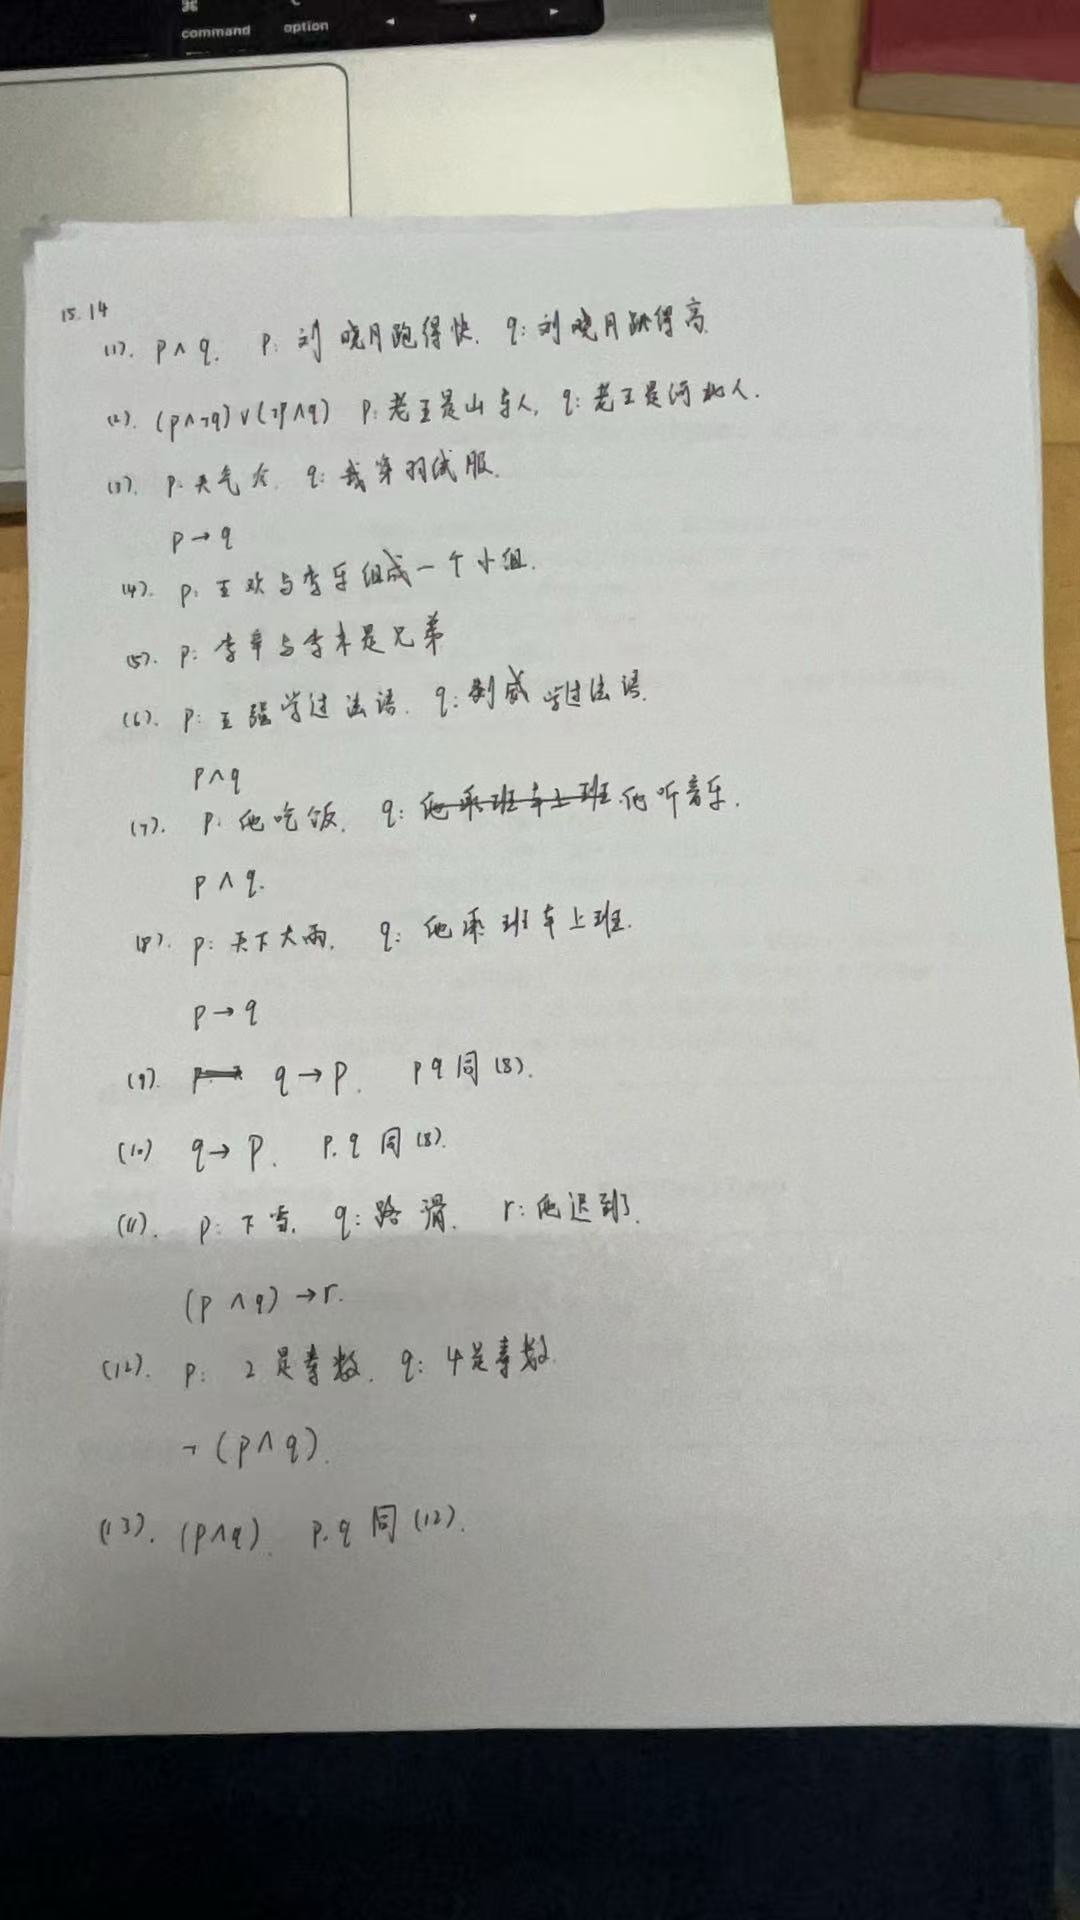 command option
15.14
(1). p∧q. p: 刘晓月跑得快. q: 刘晓月跳得高.
(2). (p∧¬q)∨(¬p∧q) p: 老王是山东人, q: 老王是河北人.
(3). p: 天气冷. q: 我穿羽绒服.
p→q
(4). p: 王欢与李乐组成一个小组.
(5). p: 李辛与李末是兄弟
(6). p: 王强学过法语. q: 刘威学过法语.
p∧q
(7). p: 他吃饭. q: 他乘班车上班. 他听音乐.
p∧q.
(8). p: 天下大雨. q: 他乘班车上班.
p→q
(9). q→p. p q 同(8).
(10) q→p. p.q 同(8).
(11). p: 下雪. q: 路滑. r: 他迟到了.
(p∧q)→r.
(12). p: 2是素数. q: 4是素数.
¬(p∧q).
(13). (p∧q). p.q 同(12).